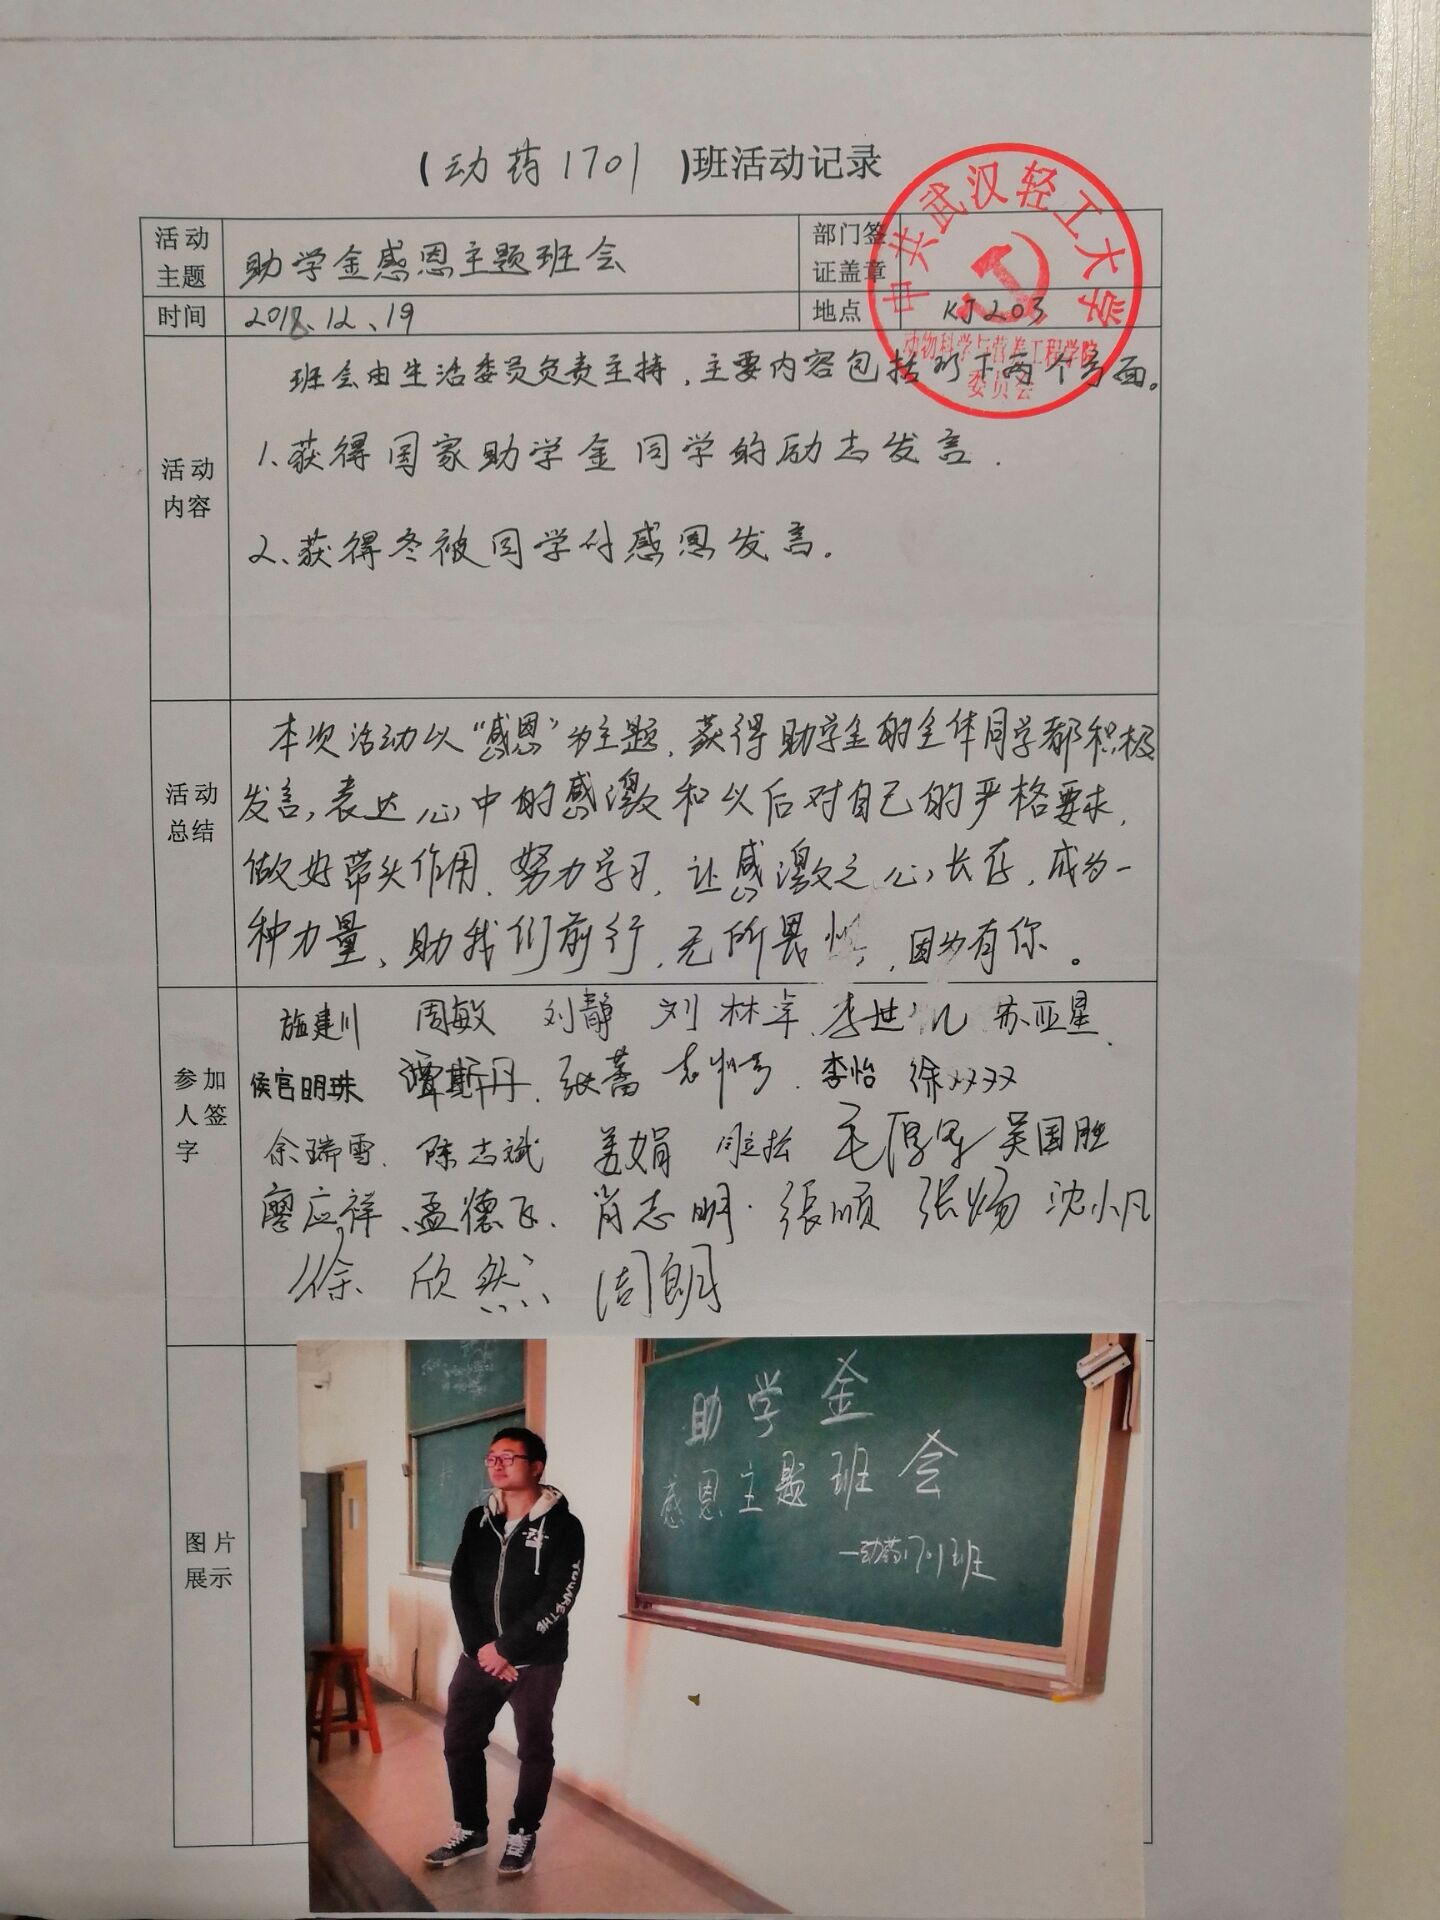 (动药1701)班活动记录
活动主题
助学金感恩主题班会
部门签证盖章
中共武汉轻工大学
动物科学与营养工程学院
委员会
时间
2018、12、19
地点
KJ203
活动内容
班会由生活委员负责主持，主要内容包括以下两个方面。
1、获得国家助学金同学的励志发言.
2、获得冬被同学的感恩发言.
活动总结
本次活动以“感恩”为主题，获得助学金的全体同学都积极
发言，表达心中的感激和以后对自己的严格要求，
做好带头作用，努力学习，让感激之心长存，成为一
种力量，助我们前行，无所畏惧，因为有你。
参加人签字
施建川 周敏 刘静 刘林 李世 苏亚星
侯官明珠 谭斯丹 张蕾 李怡 徐双双
余瑞雪 陈志斌 姜娟 毛 吴国胜
廖应祥 孟德飞 肖志明 張順 张炀 沈小凡
徐欣然 周朗
图片展示
助学金
感恩主题班会
—动药1701班